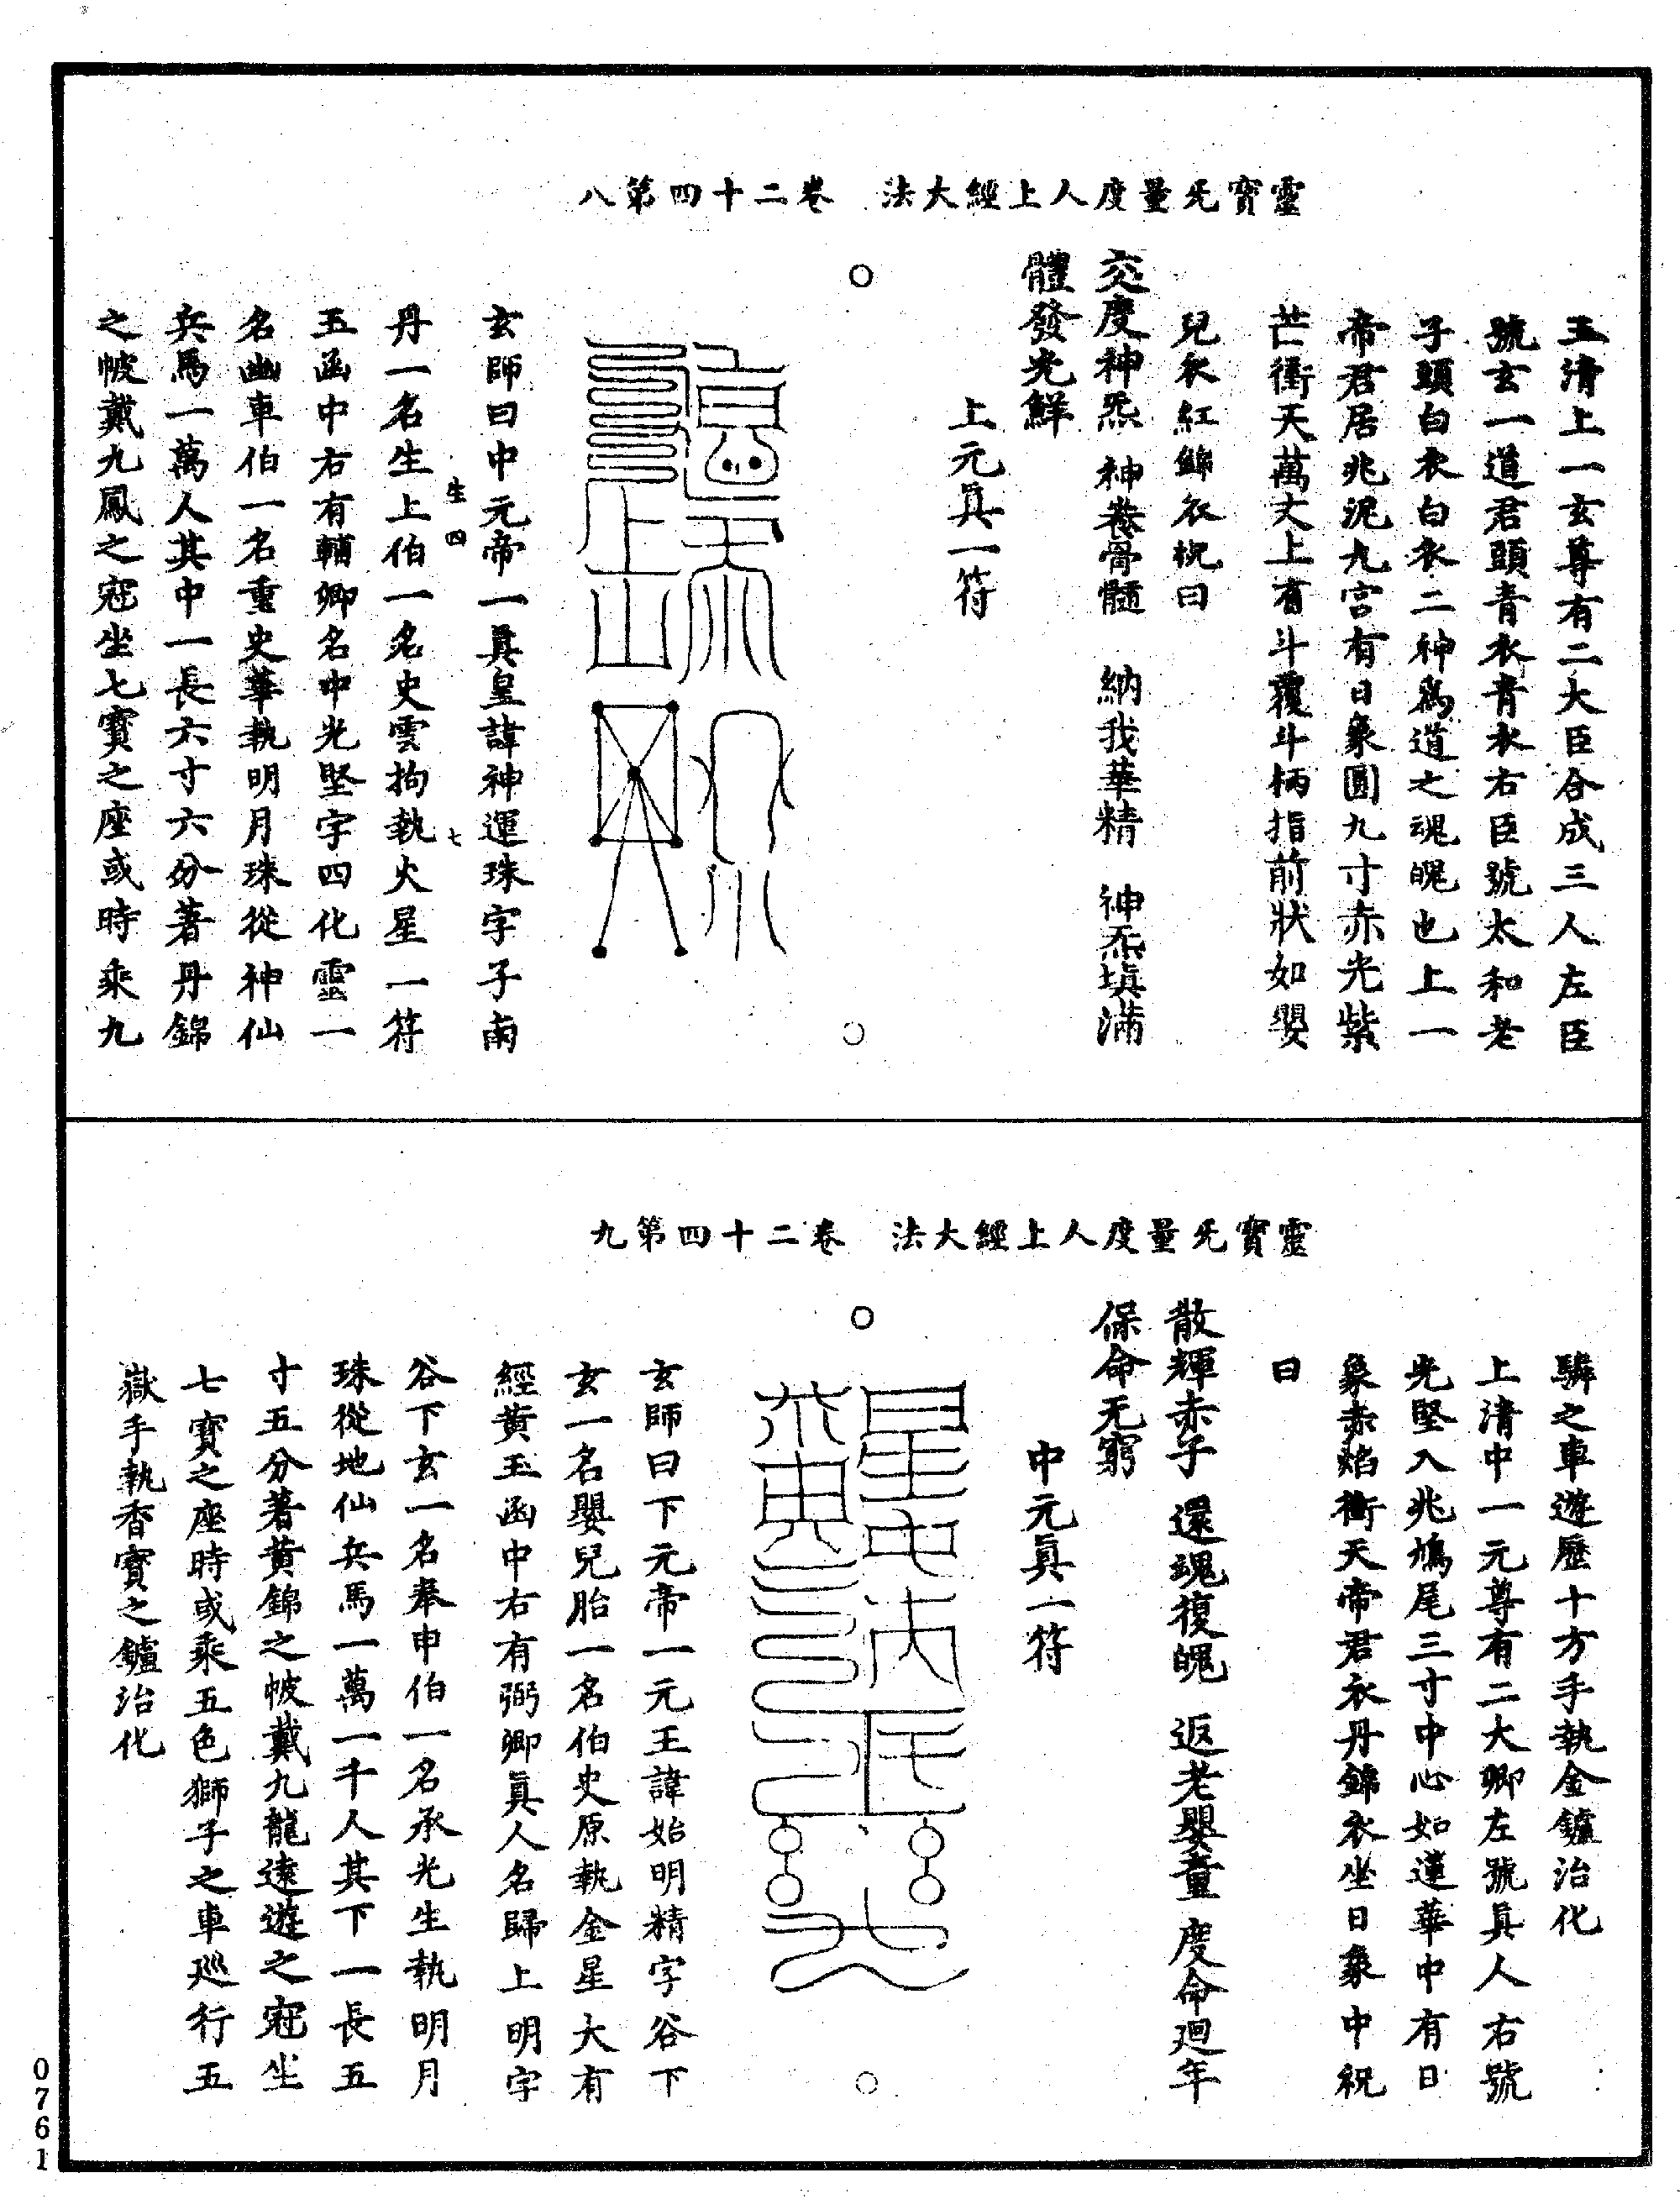 靈寶无量度人上經大法　卷二十四第八
玉清上一玄尊有二大臣合成三人左臣
號玄一道君頭青衣青衣右臣號太和老
子頭白衣白衣二神爲道之魂魄也上一
帝君居兆泥九宮有日象圓九寸赤光紫
芒衝天萬丈上有斗覆斗柄指前狀如嬰
兒衣紅錦衣祝曰
交度神炁　神養骨髓　納我華精　神炁塡滿
體發光鮮
上元眞一符
玄師曰中元帝一眞皇諱神運珠字子南
丹一名生上伯一名史雲拘執火星一符
生四　七
五函中右有輔卿名中光堅字四化靈一
名幽車伯一名重史華執明月珠從神仙
兵馬一萬人其中一長六寸六分著丹錦
之帔戴九鳳之冠坐七寶之座或時乘九
靈寶无量度人上經大法　卷二十四第九
驎之車遊歷十方手執金鑪治化
上清中一元尊有二大卿左號眞人右號
光堅入兆鳩尾三寸中心如蓮華中有日
象赤焰衝天帝君衣丹錦衣坐日象中祝
曰
散輝赤子　還魂復魄　返老嬰童　度命迴年
保命无窮
中元眞一符
玄師曰下元帝一元王諱始明精字谷下
玄一名嬰兒胎一名伯史原執金星大有
經黃玉函中右有弼卿眞人名歸上明字
谷下玄一名奉申伯一名承光生執明月
珠從地仙兵馬一萬一千人其下一長五
寸五分著黃錦之帔戴九龍遠遊之冠坐
七寶之座時或乘五色獅子之車巡行五
嶽手執香寶之鑪治化
0761